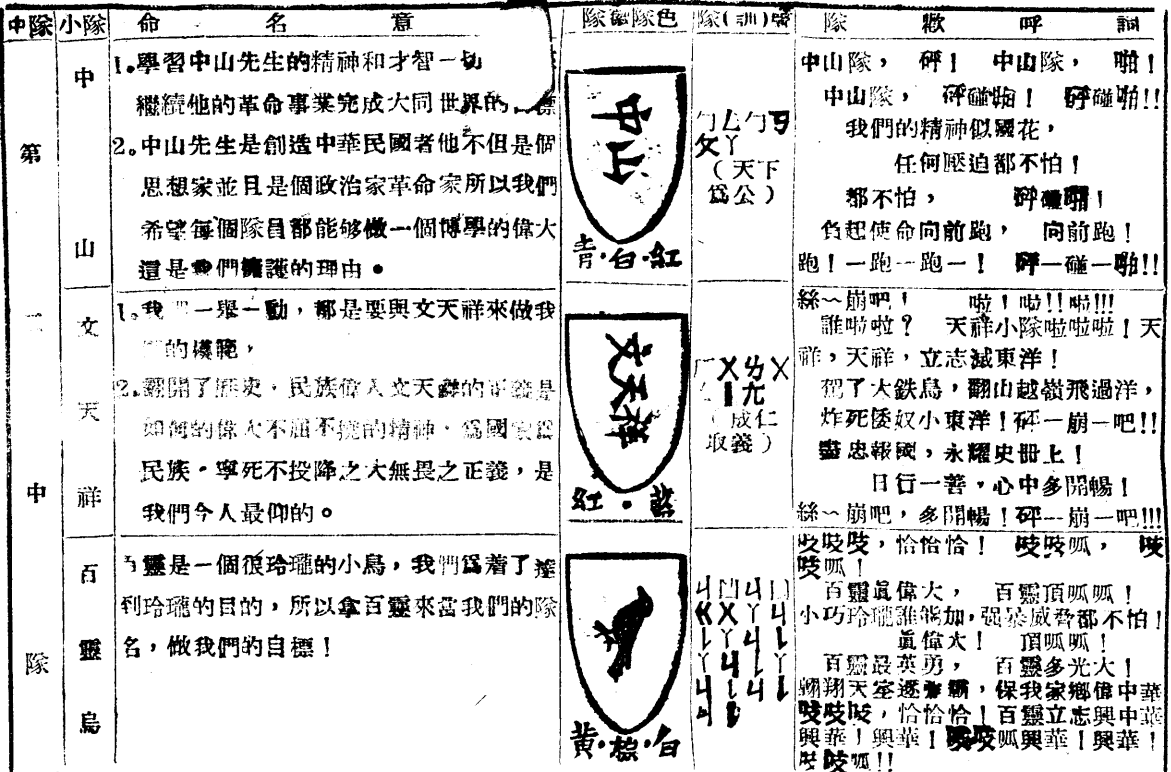 中隊 小隊 命名意 隊徽隊色 隊(訓)號 隊歡呼詞
第二中隊
中山
1。學習中山先生的精神和才智一切
繼續他的革命事業完成大同世界的
2。中山先生是創造中華民國者他不但是個
思想家並且是個政治家革命家所以我們
希望每個隊員都能够做一個博學的偉大
這是我們擁護的理由。
中山
青·白·紅
ㄅㄥㄅㄢ
ㄆㄚ
(天下
爲公)
中山隊,砰! 中山隊,啪!
中山隊,砰碰啪! 砰碰啪!!
我們的精神似國花,
任何壓迫都不怕!
都不怕, 砰碰啪!
負起使命向前跑, 向前跑!
跑!一跑一跑一! 砰一碰一啪!!
文天祥
1。我 一舉一動,都是要與文天祥來做我
的模範,
2。翻開了歷史,民族偉人文天祥的正義是
如何的偉大不屈不撓的精神,爲國家爲
民族。寧死不投降之大無畏之正義,是
我們今人最仰的。
文天祥
紅·藍
ㄨㄌㄨ
ㄤ
(成仁
取義)
絲~崩吧! 啦!啦!!啦!!!
誰啦啦? 天祥小隊啦啦啦!天
祥,天祥,立志滅東洋!
駕了大鉄鳥,翻山越嶺飛過洋,
炸死倭奴小東洋!砰一崩一吧!!
盡忠報國,永耀史册上!
日行一善,心中多開暢!
絲~崩吧,多開暢!砰一崩一吧!!!
百靈鳥
百靈是一個很玲瓏的小鳥,我們爲着了達
到玲瓏的目的,所以拿百靈來當我們的隊
名,做我們的目標!
黄·棕·白
吱吱吱,恰恰恰! 吱吱呱, 吱
吱呱!
百靈眞偉大, 百靈頂呱呱!
小巧玲瓏誰能加,强暴威脅都不怕!
眞偉大! 頂呱呱!
百靈最英勇, 百靈多光大!
翱翔天空逐 霸,保我家鄉偉中華
吱吱吱,恰恰恰!百靈立志興中華
興華!興華!吱吱呱興華!興華!
吱吱呱!!